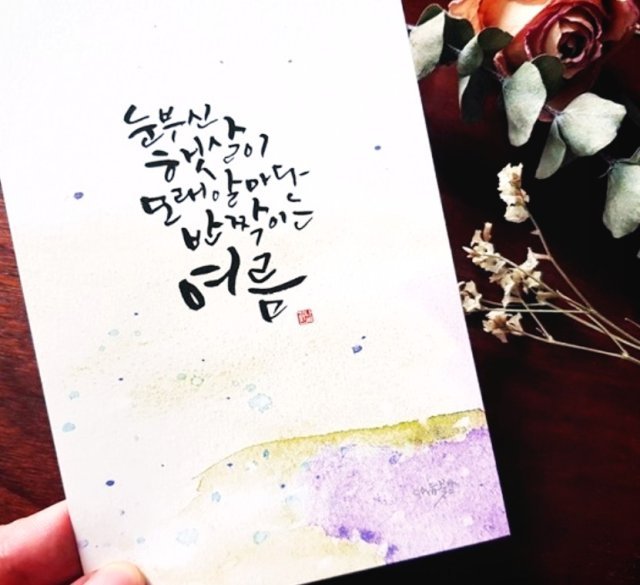 눈부신
햇살이
모래알마다
반짝이는
여름